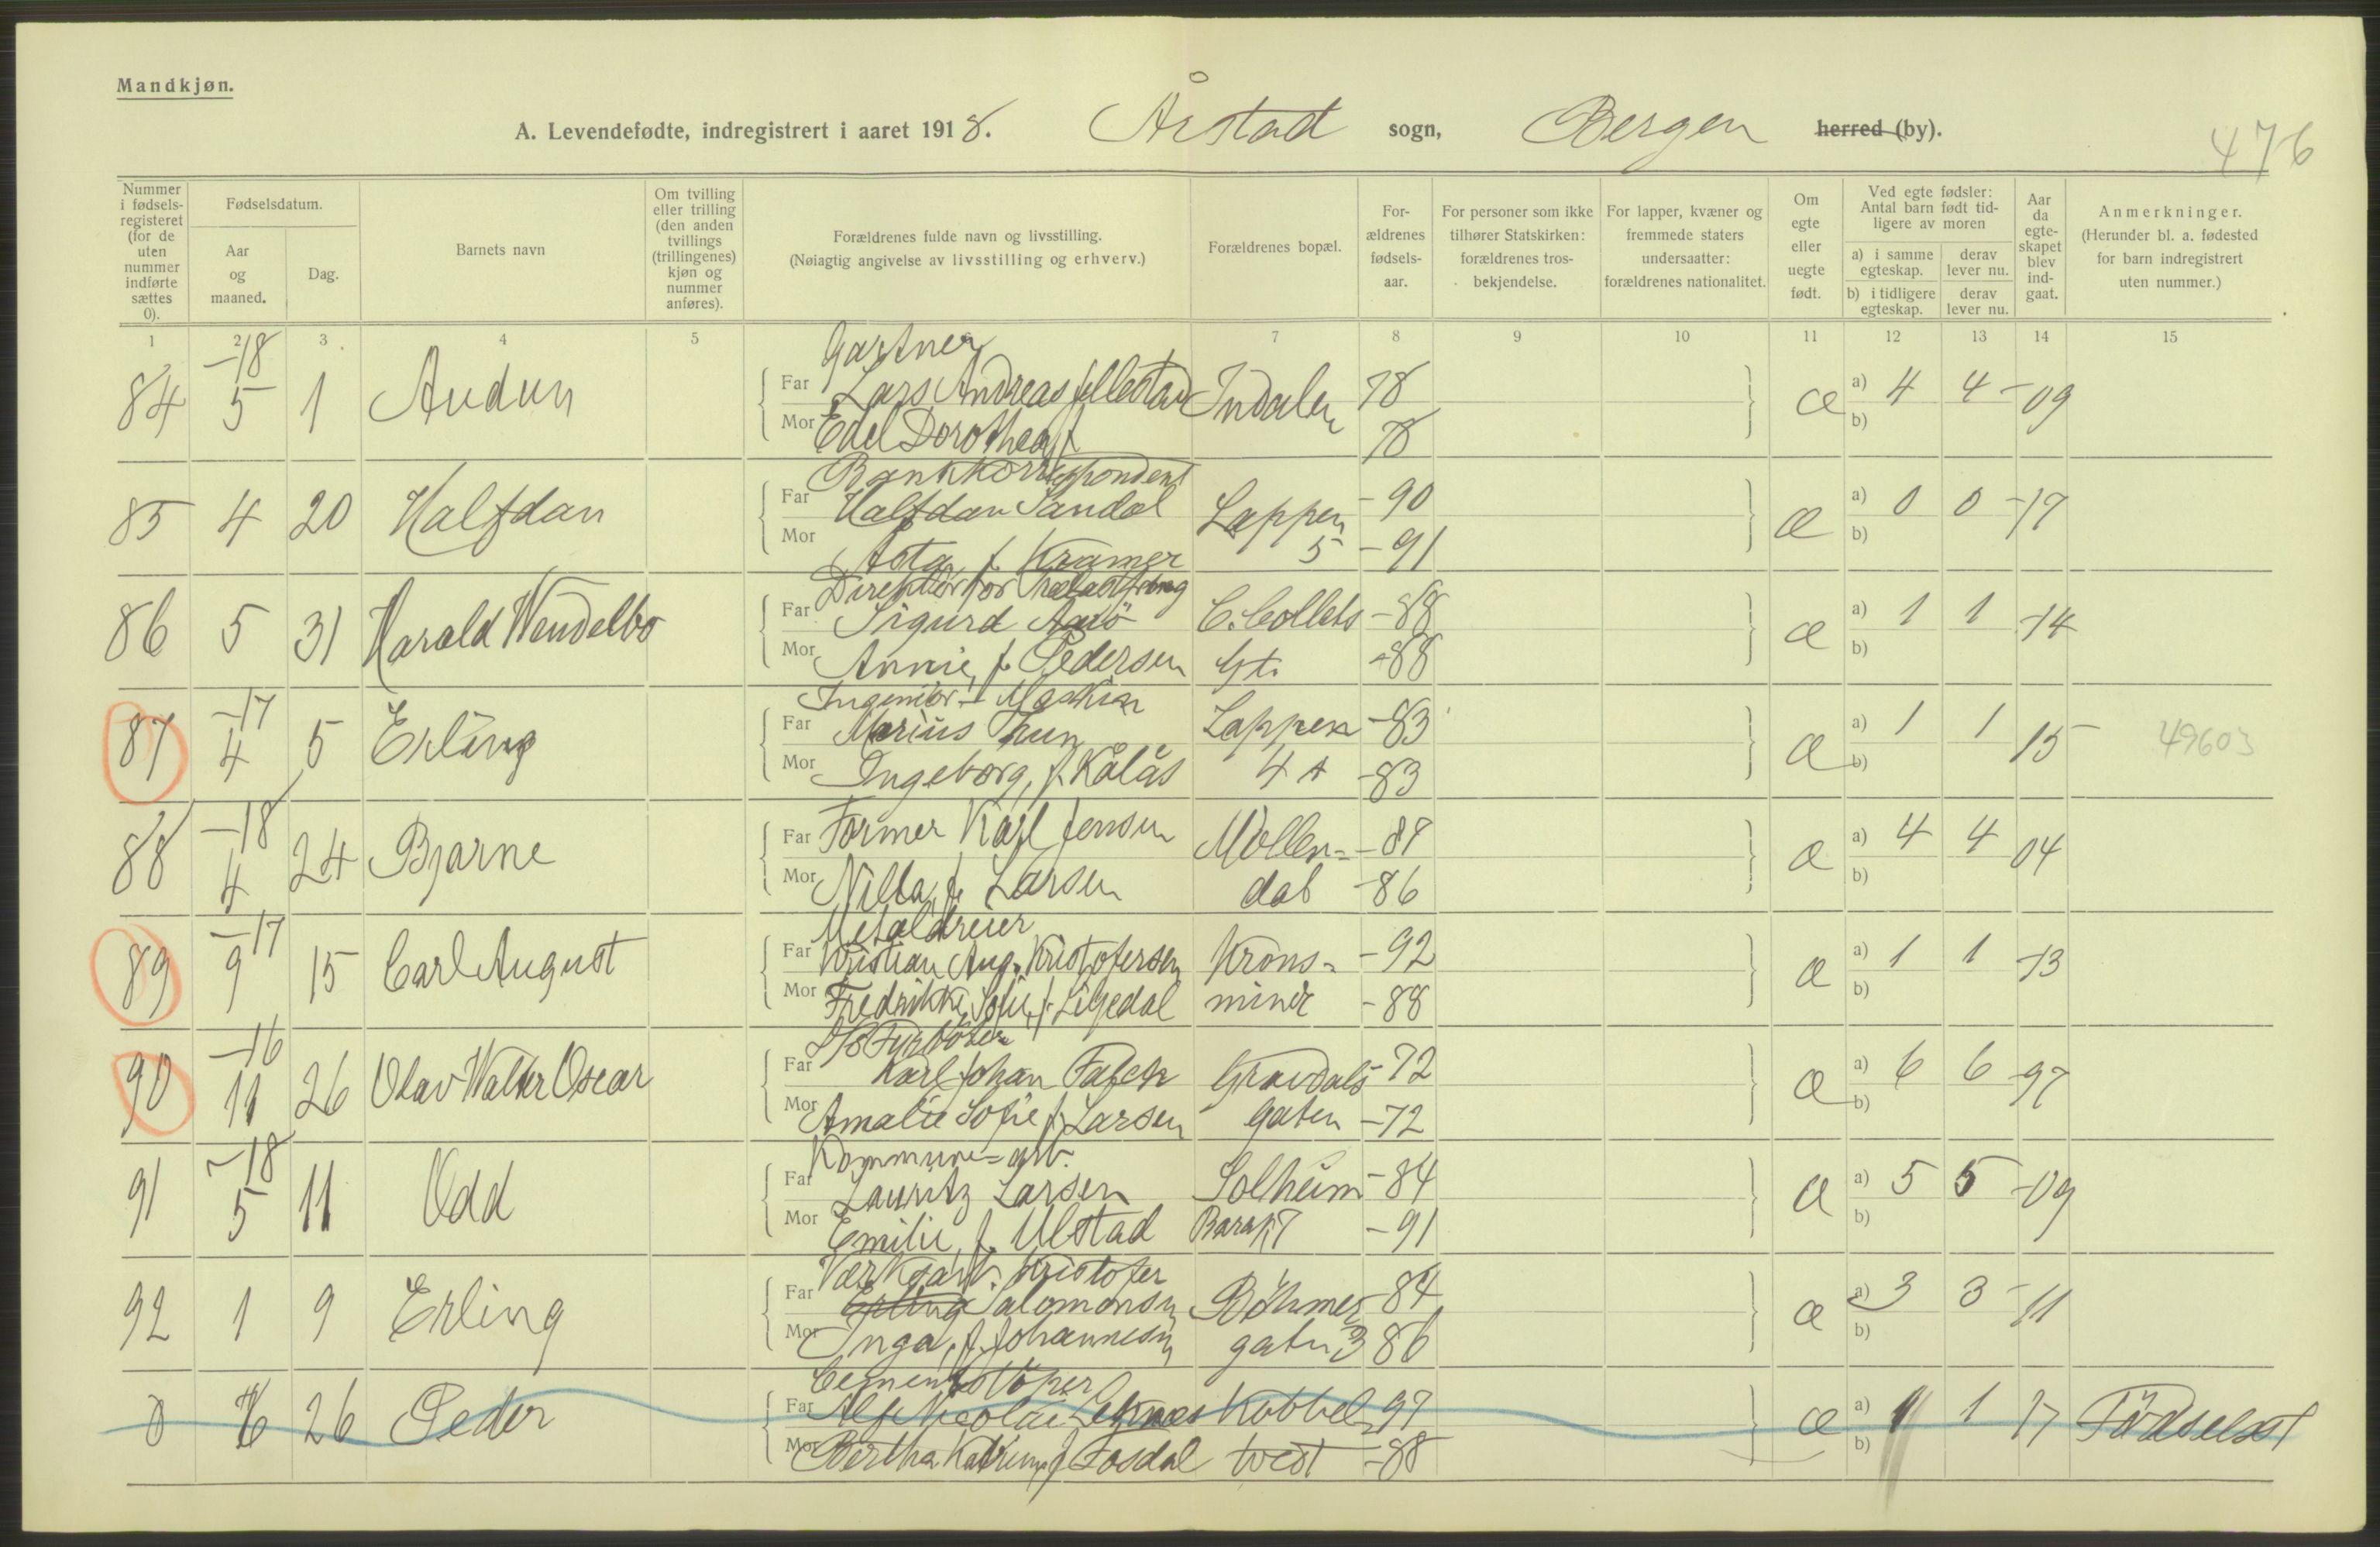 Mandkjøn.
A. Levendefødte, indregistrert i aaret 1918. Årstad sogn, Bergen herred (by).
476
Nummer i fødsels-registeret (for de uten nummer indførte sættes 0).
Fødselsdatum.
Aar og maaned.
Dag.
Barnets navn
Om tvilling eller trilling (den anden tvillings (trillingenes) kjøn og nummer anføres).
Forældrenes fulde navn og livsstilling.
(Nøiagtig angivelse av livsstilling og erhverv.)
Forældrenes bopæl.
For-ældrenes fødsels-aar.
For personer som ikke tilhører Statskirken: forældrenes tros-bekjendelse.
For lapper, kvæner og fremmede staters undersaatter: forældrenes nationalitet.
Om egte eller uegte født.
Ved egte fødsler: Antal barn født tid-ligere av moren
a) i samme egteskap.
derav lever nu.
b) i tidligere egteskap.
derav lever nu.
Aar da egte-skapet blev ind-gaat.
Anmerkninger.
(Herunder bl. a. fødested for barn indregistrert uten nummer.)
1 2 3 4 5 6 7 8 9 10 11 12 13 14 15
Gartner
84 -18 5 1 Audun Far Lars Andreas Indalen 78 æ a) 4 4 -09
Mor Edel Dorothea f 78 b)
Bankkorrespondent
85 4 20 Halfdan Far Halfdan Sandal Lappen -90 æ a) 0 0 -17
Mor Asta f. Kramer 5 -91 b)
Direktør for
86 5 31 Harald Wendelbo Far Sigurd C. Collets -88 æ a) 1 1 -14
Mor Annie, f. Pedersen Gt. -88 b)
Ingeniør - Maskin
87 -17 4 5 Erling Far Marius Thun Lappen -83 æ a) 1 1 15 49603
Mor Ingeborg, f. Kålås 4 A -83 b)
88 -18 4 24 Bjarne Far Former Karl Jensen Møllen= -87 æ a) 4 4 04
Mor f. Larsen dal -86 b)
Metaldreier
89 -17 9 15 Carl August Far Kristian Aug. Kristofersen Krons= -92 æ a) 1 1 -13
Mor Fredrikke Sofie, f. Liljedal minde -88 b)
D/S Fyrbøter
90 -16 11 26 Olav Walter Oscar Far Karl Johan Falck Gravdals 72 æ a) 6 6 -97
Mor Amalie Sofie f. Larsen gaten -72 b)
Kommune=arb.
91 -18 5 11 Odd Far Lauritz Larsen Solheim -84 æ a) 5 5 -09
Mor Emilie, f. Ulstad Barak 7 -91 b)
Verksarb. Kristofer
92 1 9 Erling Far Erling Salomonsen Bøhmer -84 æ a) 3 3 -11
Mor Inga, f. Johannesen gaten 3 86 b)
Cementstøper
0 6 26 Peder Far Alf Nicolai Leknes 97 æ a) 1 1 17 Fødselsst
Mor Bertha Katrine f. Fosdal tveit -88 b)